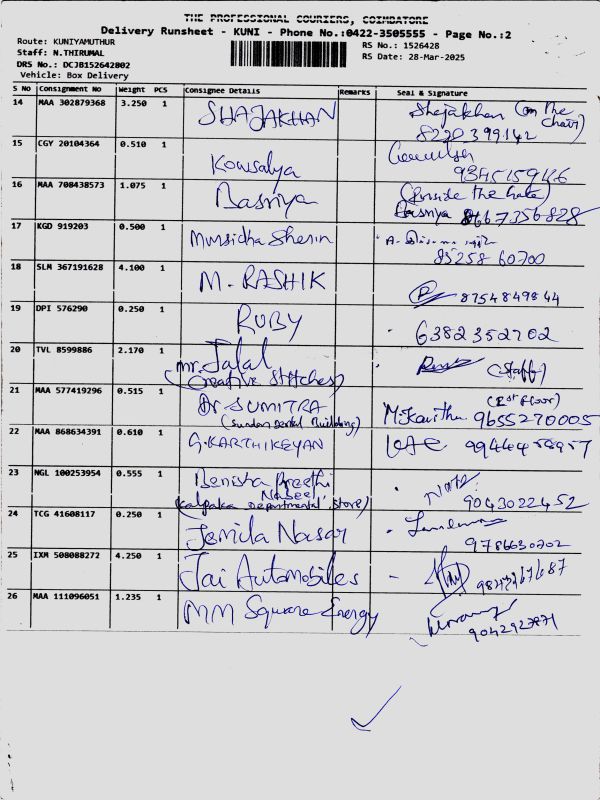 THE PROFESSIONAL COURIERS, COIMBATORE
Delivery Runsheet - KUNI - Phone No.:0422-3505555 - Page No.:2
Route: KUNIYAMUTHUR
RS No.: 1526428
Staff: N.THIRUMAL
RS Date: 28-Mar-2025
DRS No.: DCJB152642802
Vehicle: Box Delivery
S No Consignment No Weight PCS Consignee Details Remarks Seal & Signature
14 MAA 302879368 3.250 1 SHAJAKHAN Shajakhan (on the chair)
8220399142
15 CGY 20104364 0.510 1 Kowsalya
9345159446
16 MAA 708438573 1.075 1 Rasniya (Inside the Gate)
Rasniya 8667356828
17 KGD 919203 0.500 1 Mursidha Sherin
85258 60700
18 SLM 367191628 4.100 1 M. RASHIK
8754849844
19 DPI 576290 0.250 1 RUBY 6382352702
20 TVL 8599886 2.170 1 mr. Jalal (Staff)
(Creative Stitches)
21 MAA 577419296 0.515 1 Dr. SUMITRA (1st floor)
(Sundar Dental Building) M. Kavitha 9655270005
22 MAA 868634391 0.610 1 G. KARTHIKEYAN
23 NGL 100253954 0.555 1 Benisha Preethi
Nabeel 9043022452
(Kalpaka Departmental Store)
24 TCG 41608117 0.250 1 Jemila Nasar
9786630202
25 IXM 508088272 4.250 1 Jai Automobiles
26 MAA 111096051 1.235 1 MM Square Energy
9042927871